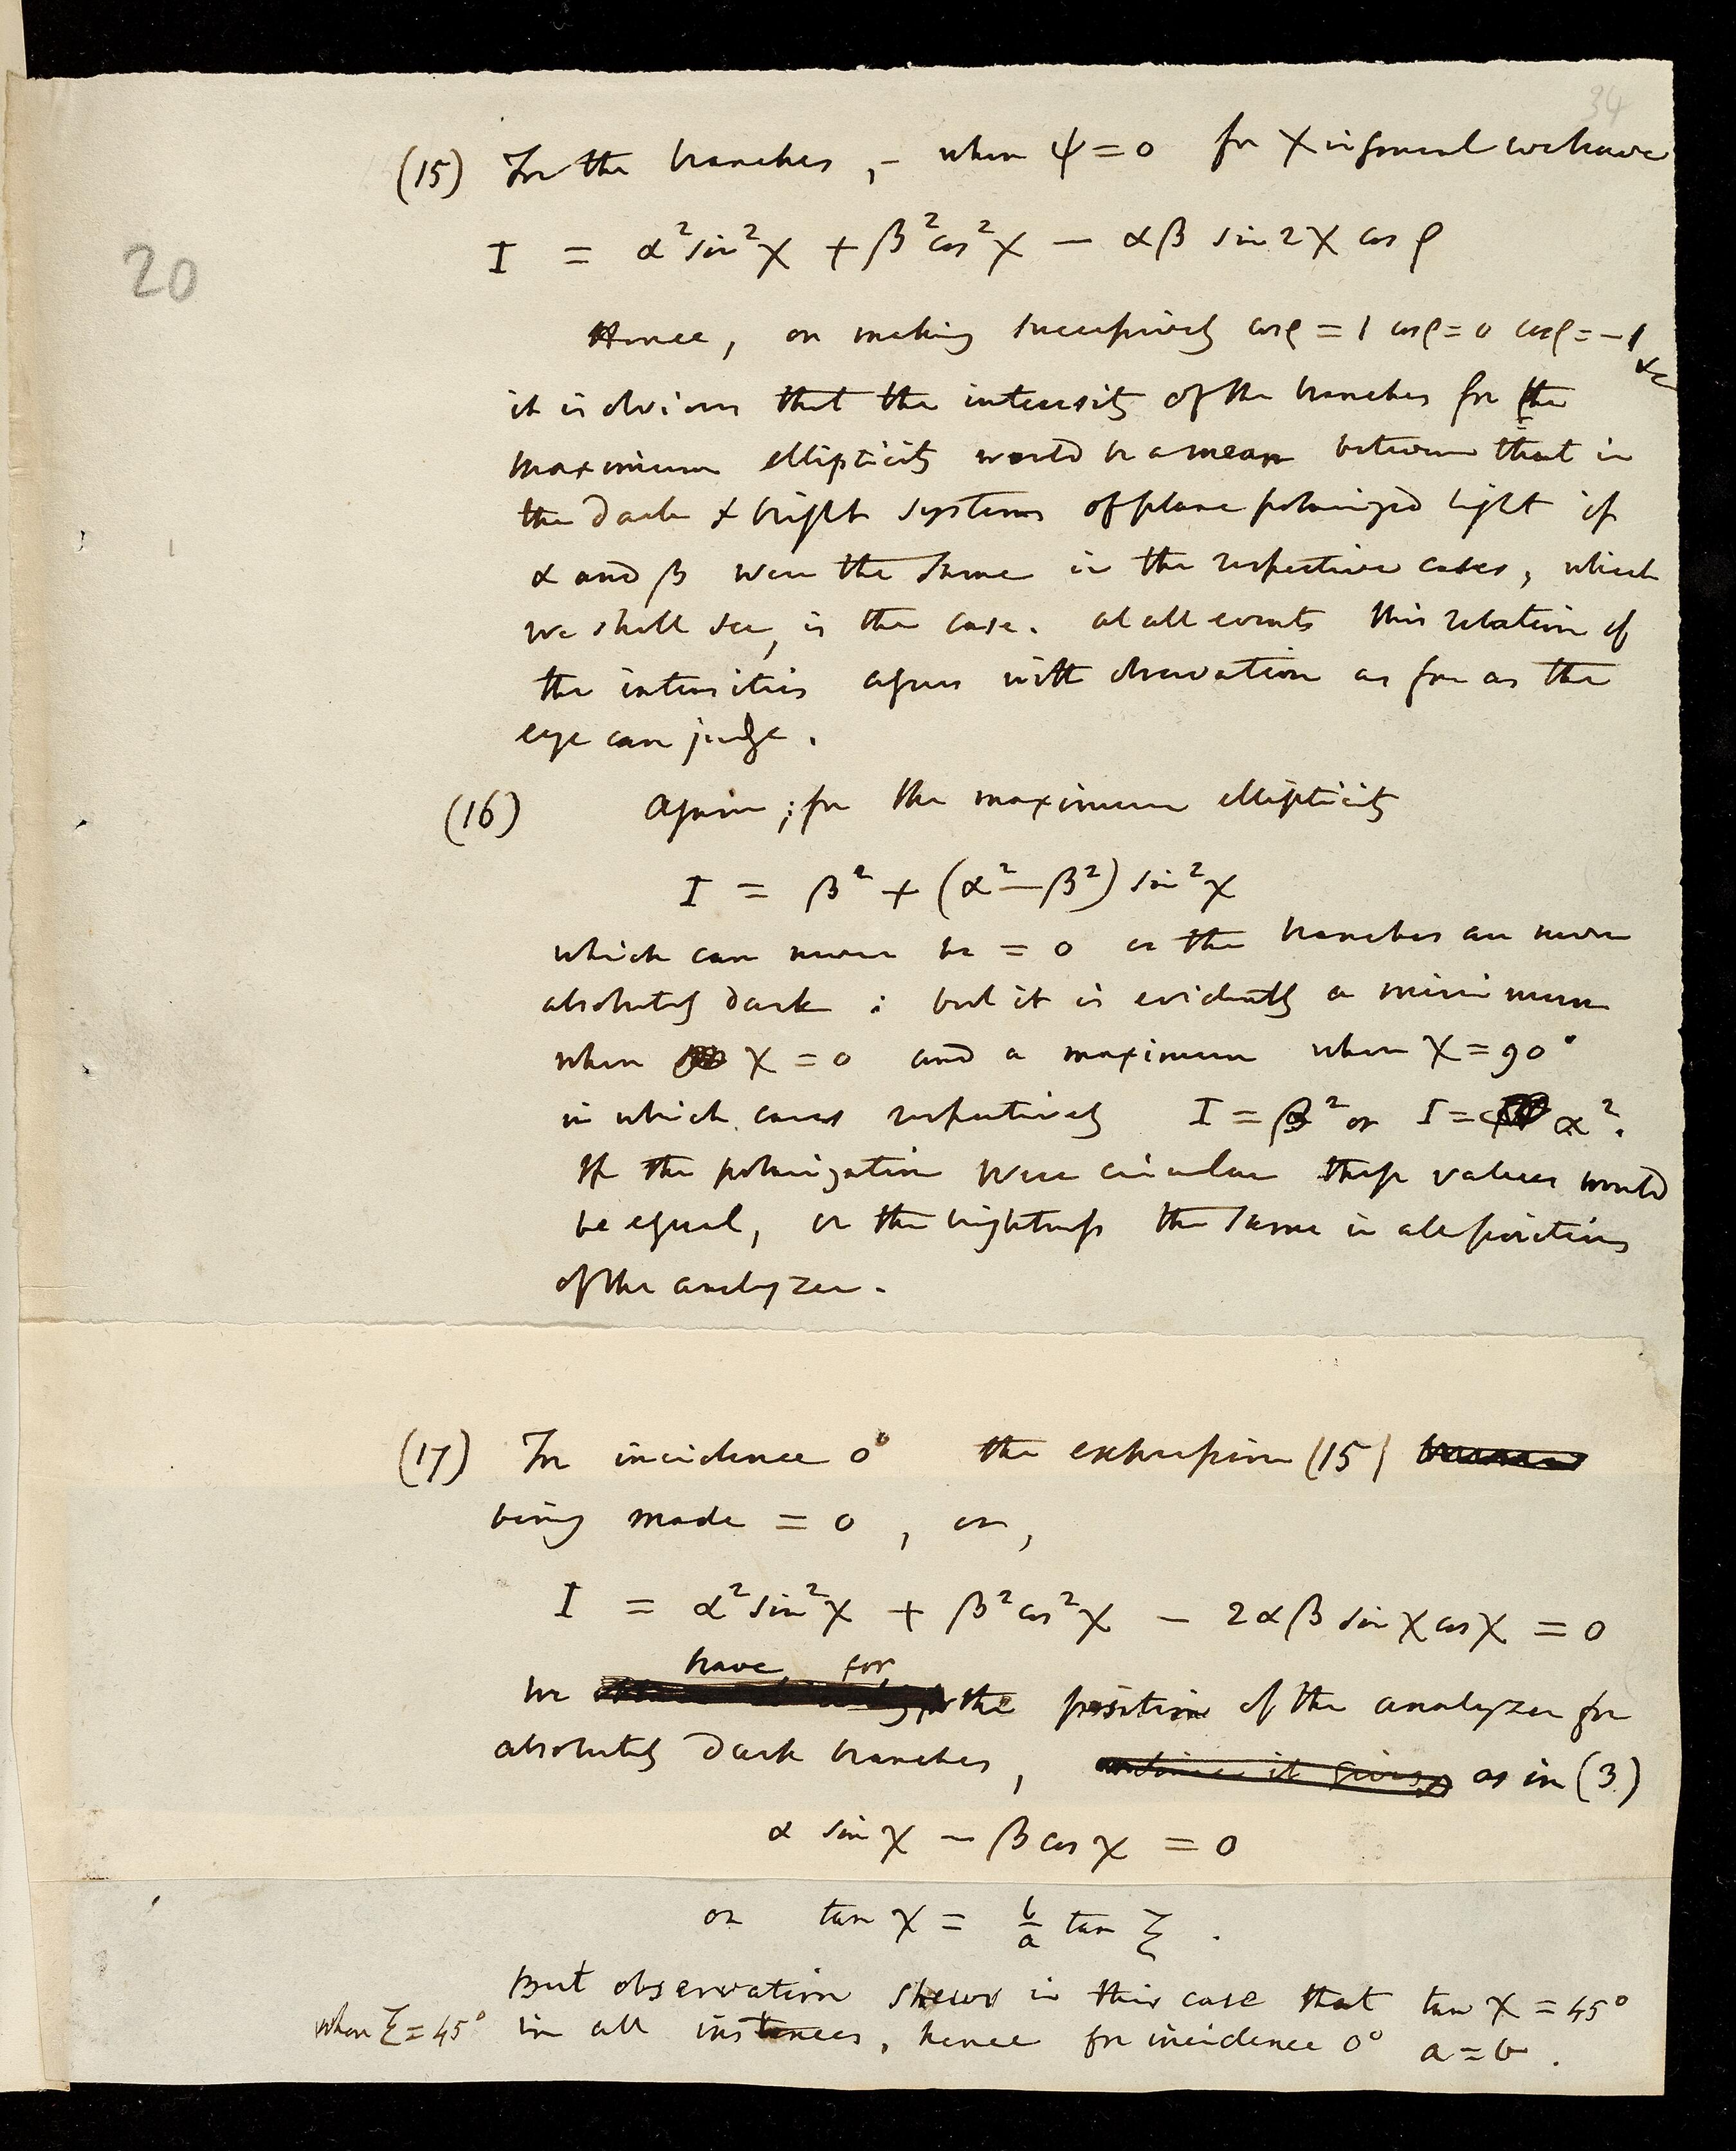 34
20
(15) For the branches, – when ψ = 0 for χ in general we have
I = α² sin² χ + β² cos² χ – αβ sin 2χ cos ρ
Hence, on making successively cos ρ = 1 cos ρ = 0 cos ρ = – 1 &c
it is obvious that the intensity of the branches for the
maximum ellipticity would be a mean between that in
the dark & bright systems of plane polarized light if
α and β were the same in the respective cases, which
we shall see, is the case. at all events this relation of
the intensities agrees with observation as far as the
eye can judge.
(16) Again; for the maximum ellipticity
I = β² + (α² – β²) sin² χ
which can never be = 0 or the branches are never
absolutely dark : but it is evidently a minimum
when χ = 0 and a maximum when χ = 90°
in which cases respectively I = β² or I = α².
If the polarization were circular these values would
be equal, or the brightness the same in all positions
of the analyzer.
(17) For incidence 0° the expression (15)
being made = 0, or,
I = α² sin² χ + β² cos² χ – 2αβ sin χ cos χ = 0
have for
we the position of the analyzer for
absolutely dark branches, it gives as in (3)
α sin χ – β cos χ = 0
or tan χ = b/a tan ξ.
But observation shews in this case that tan χ = 45°
when ξ = 45° in all instances, hence for incidence 0° a = b.